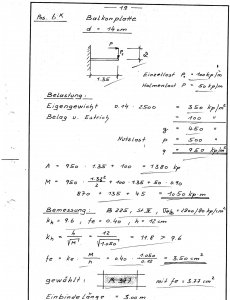 - 19 -
Pos. 6 K Balkonplatte
d = 14 cm
P
1.35
Einzellast P = 100 kp/m
Holmenlast P = 50 kp/m
Belastung:
Eigengewicht 0.14 · 2500 = 350 kp/m²
Belag u. Estrich = 100 "
g = 450 "
Nutzlast p = 500 "
q = 950 kp/m²
A = 950 · 1.35 + 100 = 1380 kp
M = 950 · 1.35²/2 + 100 · 1.35 + 50 · 0.90
870 + 135 + 45 = 1050 kp·m
Bemessung: B 225,
kh = 9.6, fe = 0.40, h = 12 cm
kh = h/√M = 12/√1.050 = 11.8 > 9.6
fe = ke · M/h = 0.40 · 1.050/0.12 = 3.50 cm²
gewählt: R 377 mit fe = 3.77 cm²
Einbindelänge = 3.00 m